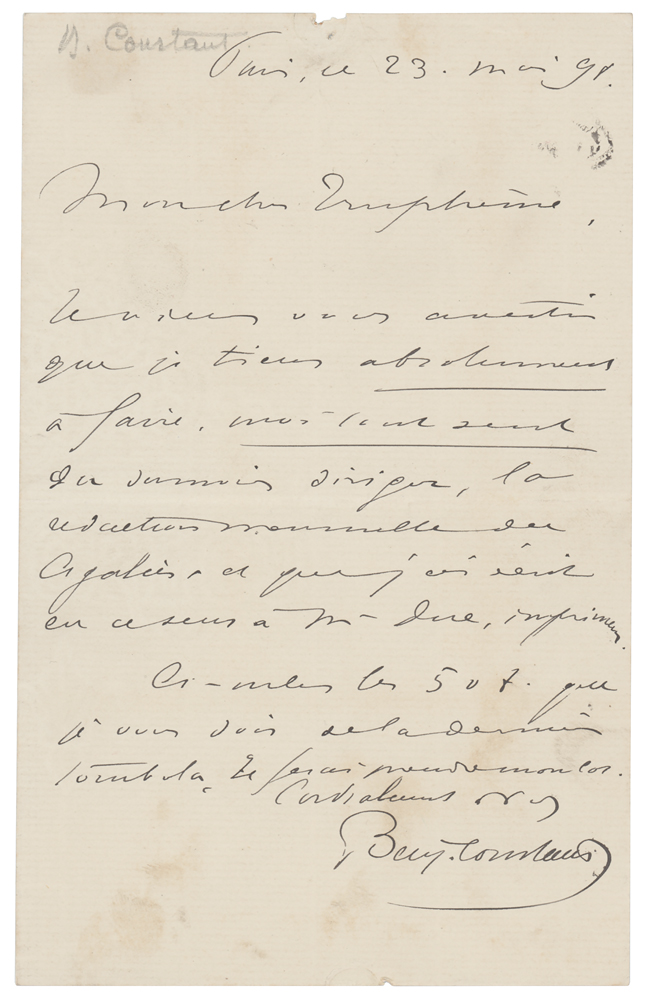 B. Constant
Paris, ce 23. mai 98.
Mon cher Truphème,
Je viens vous avertir
que je tiens absolument
à faire, moi tout seul
du dernier dîner, la
rédaction mensuelle des
Cigaliers, et que j'ai écrit
en ce sens à Mr Duc, imprimeur.
Ci-inclus les 50 f. que
je vous dois de la dernière
tombola. Je ferai prendre mon lot.
Cordialement à vous
Benj. Constant